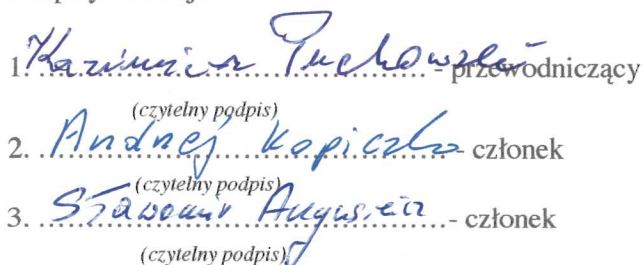 1. Kazimierz Puchowski - przewodniczący
(czytelny podpis)
2. Andrzej Kopiczko - członek
(czytelny podpis)
3. Sławomir Augusiewicz - członek
(czytelny podpis)